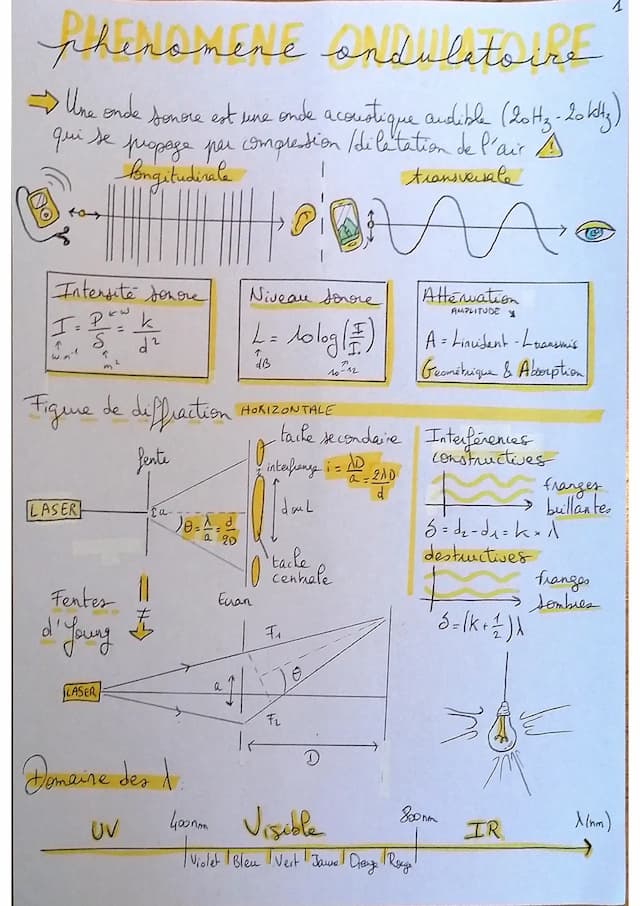 1
PHENOMENE ONDULATOIRE
phenomene ondulatoire
Une onde sonore est une onde acoustique audible (20Hz - 20kHz)
qui se propage par compression/dilatation de l'air
longitudinale
transversale
Intensité sonore
I = P/S = k/d²
m²
Niveau sonore
L = 10log(I/I.)
dB
10⁻¹²
Atténuation
AMPLITUDE ↘
A = Lincident - Ltransmis
Géométrique & Absorption
Figure de diffraction HORIZONTALE
fente
LASER
a
θ = λ/a = d/2D
tache secondaire
interfrange i = λD/a = 2λD/d
d ou L
tache
centrale
Ecran
Interférences
constructives
franges
brillantes
δ = d₂ - d₁ = k × λ
destructives
franges
sombres
δ = (k + 1/2)λ
≠
Fentes
d'Young
LASER
a
F₁
F₂
θ
D
Domaine des λ
UV
400nm
Visible
800nm
IR
λ(nm)
Violet | Bleu | Vert | Jaune | Orange | Rouge